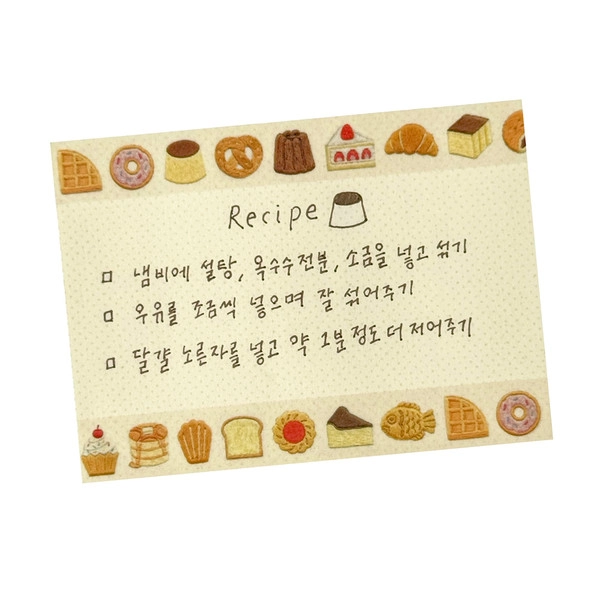 Recipe
□ 냄비에 설탕, 옥수수전분, 소금을 넣고 섞기
□ 우유를 조금씩 넣으며 잘 섞어주기
□ 달걀 노른자를 넣고 약 1분정도 더 저어주기